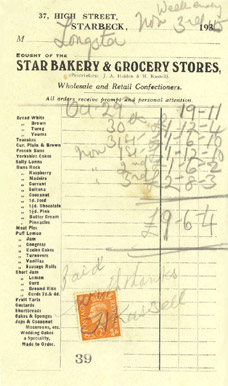 37, HIGH STREET,
STARBECK, Nov 3rd 193
Week ending
M Longster
BOUGHT OF THE
STAR BAKERY & GROCERY STORES,
(Proprietors: J. A. Holden & M. Kassell).
Wholesale and Retail Confectioners.
All orders receive prompt and personal attention
Oct 29th 19-11
Bread White
" Brown 30
" Turog
" Youma
Teacakes
Cur. Plain & Brown Nov 1st
French Buns
Yorkshire Cakes
Sally Lunns
Buns Rock 3rd 2-8-3
" Raspberry
" Madeira
" Currant
" Sultana
" Cocoanut
" 1d. Seed
" 1½d. Chocolate
" 1½d. Pink
" Butter Cream £9-6-4
" Pinnacles
Meat Pies
Puff Lemon
" Jam
" Congress
" Eccles Cakes
" Turnovers
" Vanillas
" Sausage Rolls
Short Jam
" Lemon
" Curd
" Ground Rice
" Curds 2d & 4d.
Fruit Tarts
Custards
Shortbreads
Cakes & Sponges
Japs & Cocoanut
Macaroons, etc.
Wedding Cakes
a Speciality,
Made to Order.
Paid
with thanks
Kassell
39